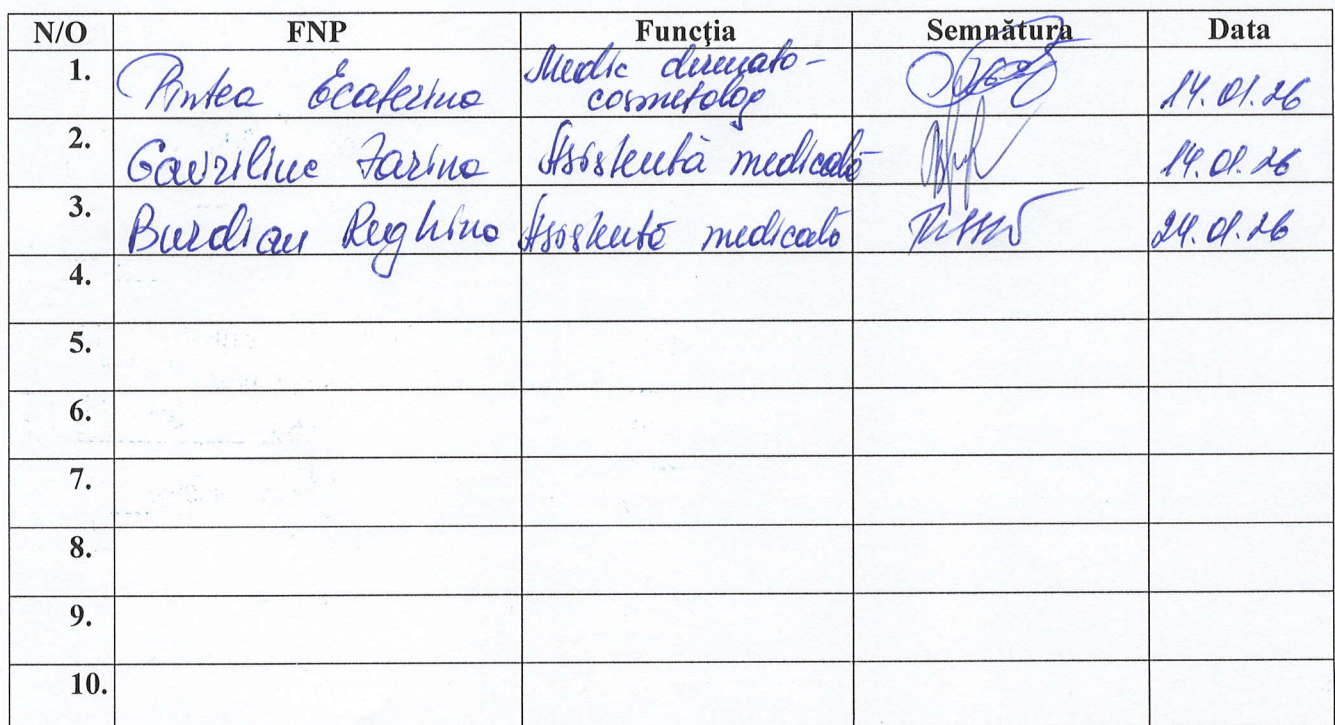 N/O FNP Funcţia Semnătura Data
1. Pintea Ecaterina Medic dermato-cosmetolog 14.01.26
2. Gavriliuc Zarina Asistentă medicală 14.01.26
3. Burdian Reghina Asistentă medicală 24.01.26
4.
5.
6.
7.
8.
9.
10.